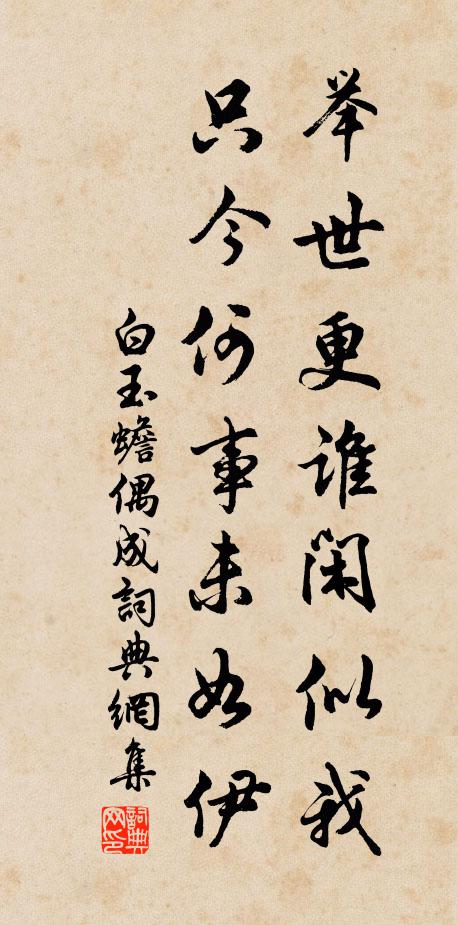 举世更谁闲似我
只今何事未如伊
白玉蟾偶成詞典網集
詞典网印